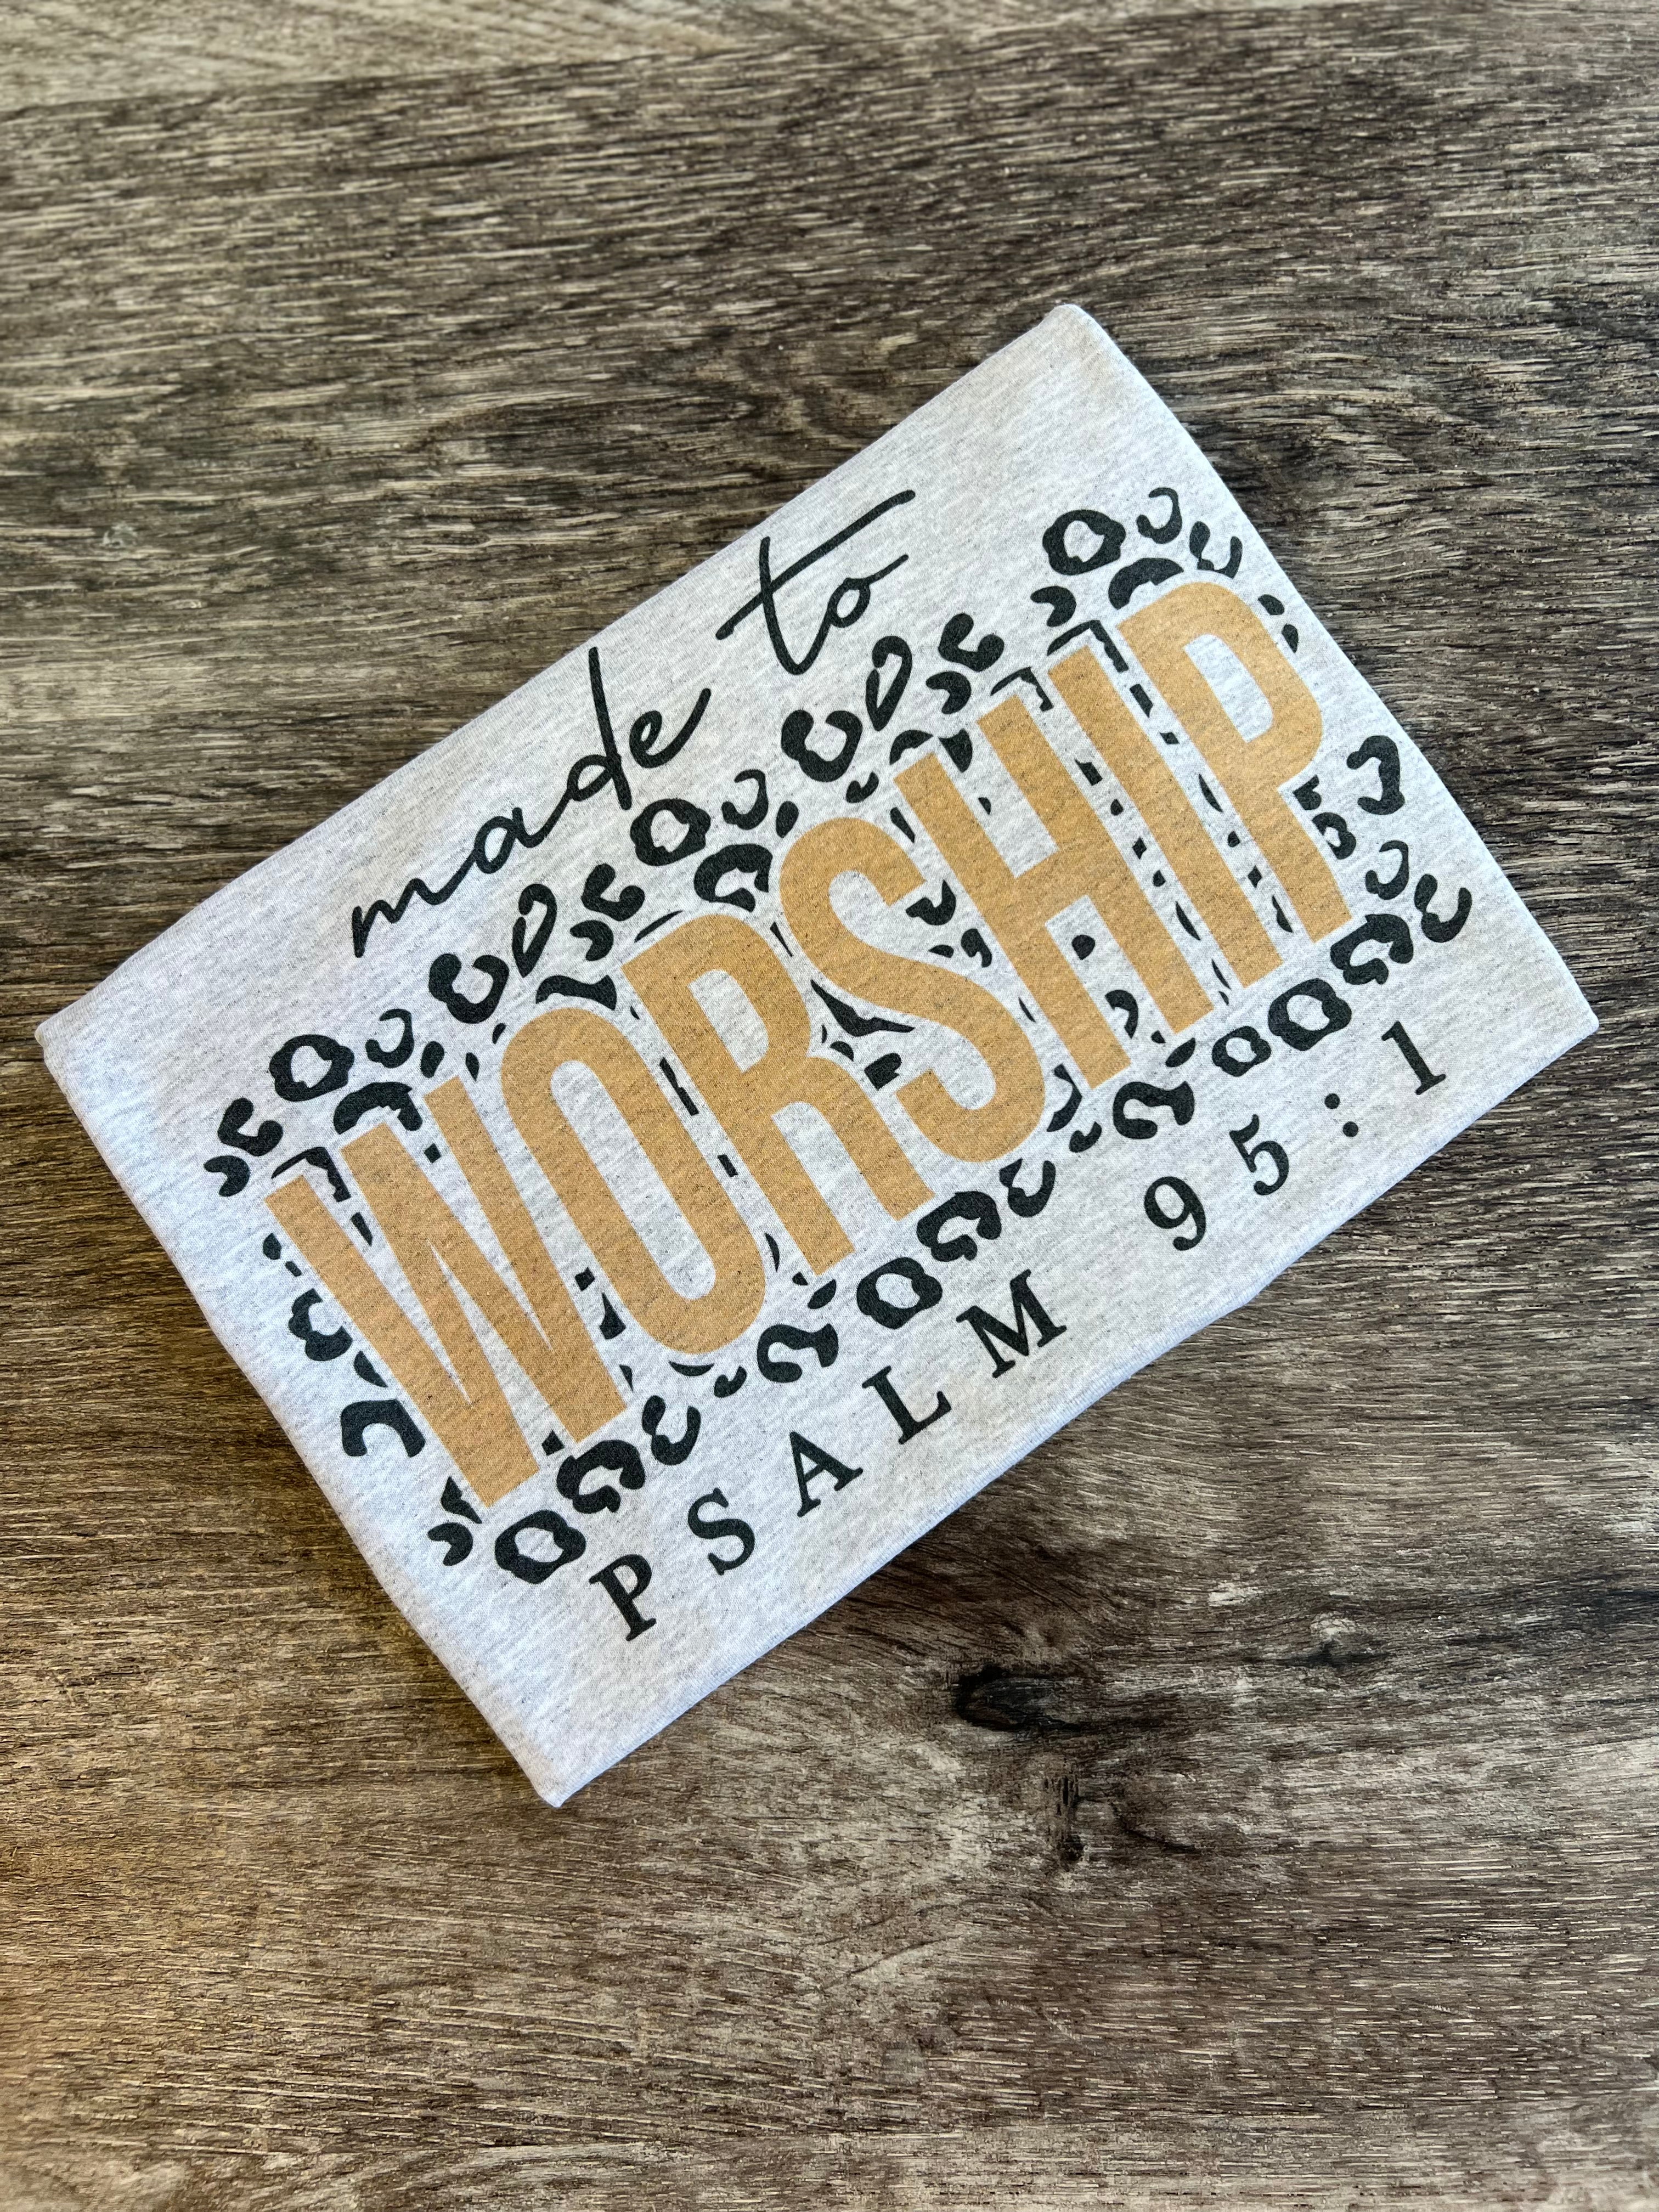 made to
WORSHIP
PSALM 95:1